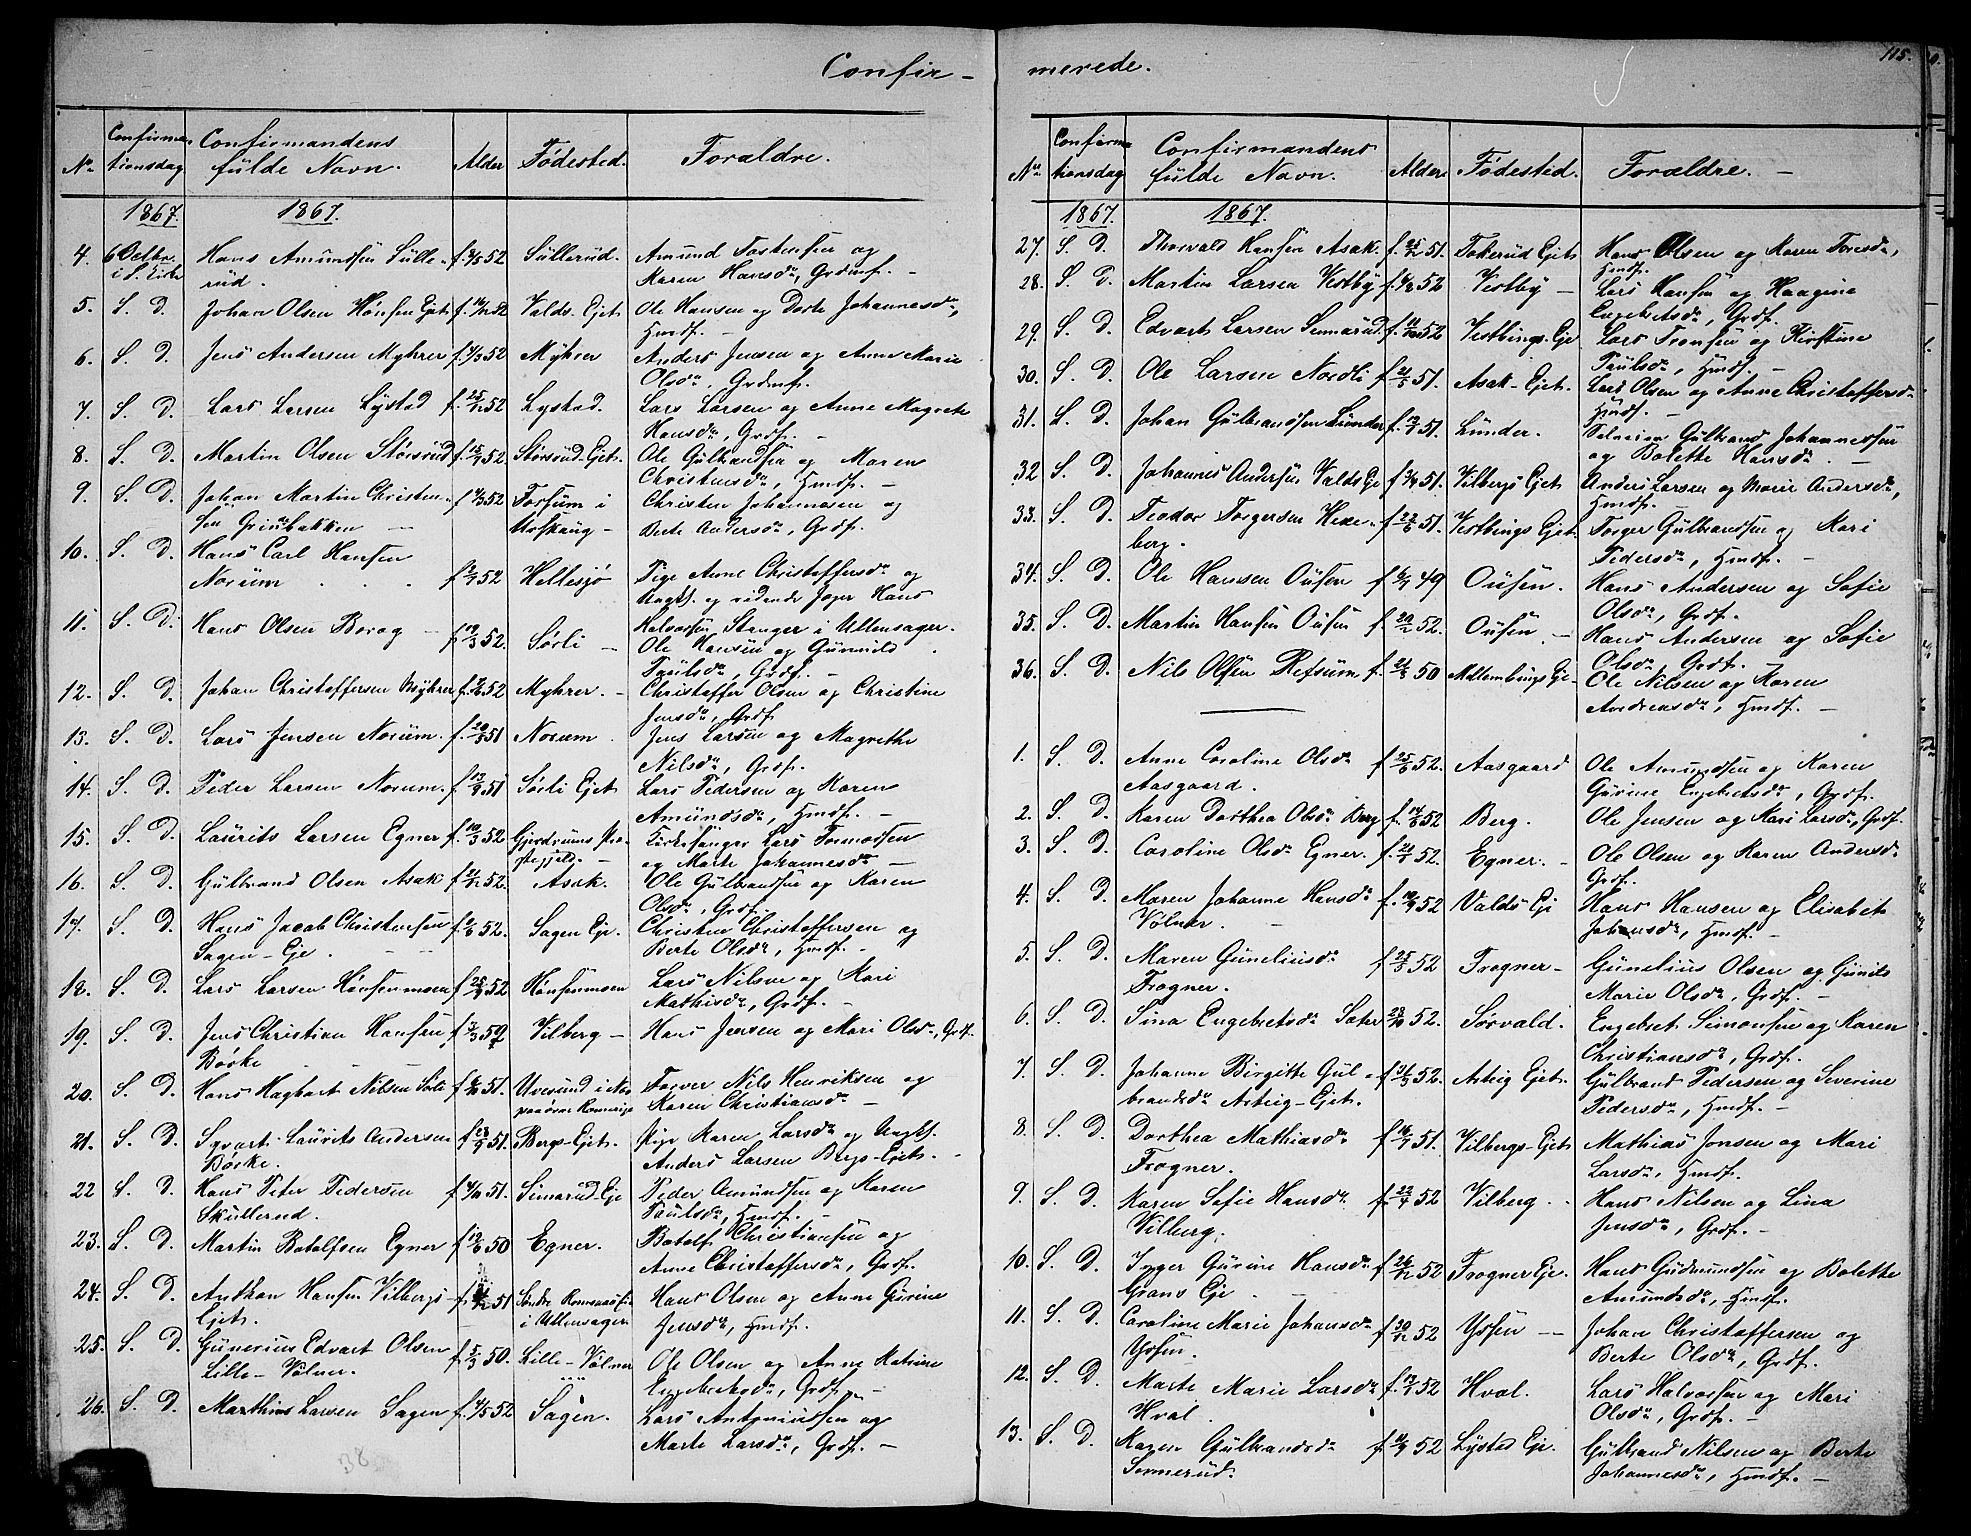 Confir-
No Confirma-tionsdag Confirmandens fülde Navn. Alder Fødested. Forældre.
1867. 1867.
4. 6 Octbr. Hans Amundsen Sülle- f. 52 Süllerud. Amund Tostensen og
rüd. Karen Hansdr, Grdmf. -
5. S. D. Johan Olsen Hønsen Ejet f. 52 Valds-Ejet Ole Hansen og Dorte Johannesdr,
Hmdf. -
6. S. D. Jens Andersen Myhrer f. 52 Myhrer Anders Jensen og Anne Marie
Olsdr, Grdmf.
7. S. D. Lars Larsen Lystad f. 52 Lystad. Lars Larsen og Anne Magrete
Hansdr, Grdf. -
8. S. D. Martin Olsen Størsrüd f. 52 Størsrüd-Ejet. Ole Gülbrandsen og Maren
Christensdr, Hmdf. -
9. S. D. Johan Martin Christen- f. 52 i Christen Johannesen og
sen Grinbakken - Urskaug - Berte Andersdr, Grdf.
10. S. D. Hans Carl Hansen
Norüm f. 52 Hellesjø Pige Anne Christoffersdr og
Ungk. og ridende Jæger Hans
11. S. D. Hans Olsen Borag - f. 52. Sørli - Halvorsen Stanger i Ullensager.
Ole Hansen og Gunnild
Paulsdr, Grdf. -
12. S. D. Johan Christoffersen Myhrer f. 52 Myhrer. - Christoffer Olsen og Christine
Jensdr, Grdf
13. S. D. Lars Jensen Norüm. f. 51 Norum Jens Larsen og Magrethe
Nilsdr, Grdf.
14. S. D. Peder Larsen Norum. f. 51 Sørli Ejet Lars Pedersen og Karen
Amündsdr, Hmdf. -
15. S. D. Laurits Larsen Egner f. 52 Gjerdrums Præ- Kirkesanger Lars Tormodsen
stegjeld. - og Marte Johannesdr -
16. S. D. Gülbrand Olsen Asak f. 52. Asak. Ole Gülbrandsen og Karen
Olsdr, Grdf.
17. S. D. Hans Jacob Christensen f. 52. Sagen Eje. Christen Christoffersen og
Sagen-Eje. Berte Olsdr, Hmdf. -
18. S. D. Lars Larsen Hønsenmoen f. 52 Hønsenmoen Lars Nilsen og Kari
Mathisdr, Grdf. -
19. S. D. Jens Christian Hansen f. 52 Vilberg - Hans Jensen og Mari Olsdr, Grdf.
Børke
20. S. D. Hans Hagbart Nilsen Sørli f. 51. Farver Nils Henriksen og
Romerige Karen Christiansdr -
21. S. D. Sqvart Laurits Andersen f. 51. Bergs-Ejet. Pige Karen Larsdr og Ungk.
Børke. Anders Larsen Bergs-Ejet. -
22 S. D. Hans Peter Pedersen f. 51. Simarud-Eje Peder Amündsen og Karen
Skullerud. Paulsdr, Hmdf. -
23. S. D. Martin Botolfsen Egner f. 50 Egner. Botolf Christiansen og
Anne Christoffersdr, Grdf.
24. S. D. Anthon Hansen Vilbergs- f. 51 Søndre Hans Olsen og Anne Gurine
Ejet. i Ullensager Jensdr, Hmdf.
25. S. D. Günerius Edvart Olsen f. 50. Lille-Vølner Ole Olsen og Anne Katrine
Lille-Vølner. Engebretsdr, Grdf. -
26. S. D. Marthinus Larsen Sagen f. 4/5 52 Sagen. Lars Antoniüssen og
Marte Larsdr, Grdf. -
38
115.
merede.
No Confirma-tionsdag Confirmandens fülde Navn. Alder Fødested. Forældre. -
1867. 1867.
27. S. D. Thorvald Hansen Asak. f. 51. Tokerud Ejet Hans Olsen og Karen Toresdr,
Hmdf.
28. S. D. Martin Larsen Vestby f. 52 Vestby - Lars Hansen og Haagine
Engebretsdr, Grdf.
29. S. D. Edvart Larsen Sennerud f. 52 Vestbings-Eje Lars Tronsen og Kirstine
Paulsdr, Hmdf. -
30. S. D. Ole Larsen Nordli f. 51. Asak-Ejet. Lars Olsen og Anne Christoffersdr
Hmdf. -
31. S. D. Johan Gülbrandsen Lünder f. 51. Lünder. Selveier Gülbrand Johannessen
og Bolette Hansdr. -
32 S. D. Johannes Andersen Valds Eje f. 51. Vilbergs Ejet. Anders Larsen og Marie Andersdr,
Hmdf.
33. S. D. Teodor Torgersen Hexe- f. 51. Vestbings Ejet. Torger Gülbrandsen og Mari
berg. Pedersdr, Hmdf. -
34. S. D. Ole Hansen Oüsen f. 49 Oüsen. Hans Andersen og Sofie
Olsdr, Grdf.
35. S. D. Martin Hansen Oüsen f. 52. Oüsen. - Hans Andersen og Sofie
Olsdr Grdf. -
36. S. D. Nils Olsen Refsum f. 50 Mellembings Eje- Ole Nilsen og Karen
Andreasdr, Hmdf. -
1. S. D. Anne Caroline Olsdr f. 52. Aasgaard Ole Amundsen og Karen
Aasgaard. Gürine Engebretsdr, Grdf.
2. S. D. Karen Dorthea Olsdr Berg f. 52 Berg. Ole Jensen og Mari Larsdr, Grdf.
3. S. D. Caroline Olsdr Egner. f. 52. Egner. - Ole Olsen og Karen Andersdr
Grdf.
4. S. D. Maren Johanne Hansdr f. 52 Valds Eje Hans Hansen og Elisabet
Vølner. - Johansdr, Hmdf. -
5. S. D. Maren Güneliüsdr f. 52 Frogner- Günelius Olsen og Günild
Frogner. Marie Olsdr, Grdf. -
6. S. D. Sina Engebretsdr Sæter 52. Sørvald. Engebret Simonsen og Karen
Christiansdr, Grdf.
7. S. D. Johanne Birgitte Gül- f. 52. Asteig Ejet. Gülbrand Pedersen og Severine
brandsdr Asteig-Ejet. Pedersdr, Hmdf. -
8. S. D. Dorthea Mathiasdr f. 51. Vilbergs-Ejet Mathias Jonsen og Mari
Frogner. Larsdr, Hmdf.
9. S. D. Karen Sofie Hansdr f. 22/4 52 Vilberg. - Hans Nilsen og Lina
Vilberg. Jensdr, Grdf. -
10. S. D. Inger Gürine Hansdr f. 52 Frogner Eje. Hans Gudmundsen og Bolette
Grans Eje. Amundsdr, Hmdf.
11. S. D. Caroline Marie Johansdr f. 52 Yssen -- Johan Christoffersen og
Yssen. Berte Olsdr, Grdf.
12. S. D. Marte Marie Larsdr f. 52 Hval. Lars Halvorsen og Mari
Hval. Olsdr, Grdf. -
13. S. D. Karen Gülbrandsdr f. 52 Lystad Eje. Gülbrand Nilsen og Berte
Sennerüd. Johannesdr, Hmdf. -